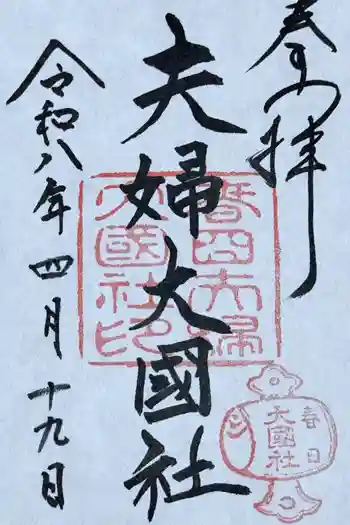 奉拝
夫婦大國社
令和八年四月十九日
春日夫婦大國社印
春日
大國社